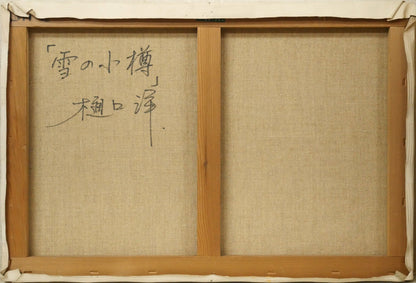 「雪の小樽」
樋口洋